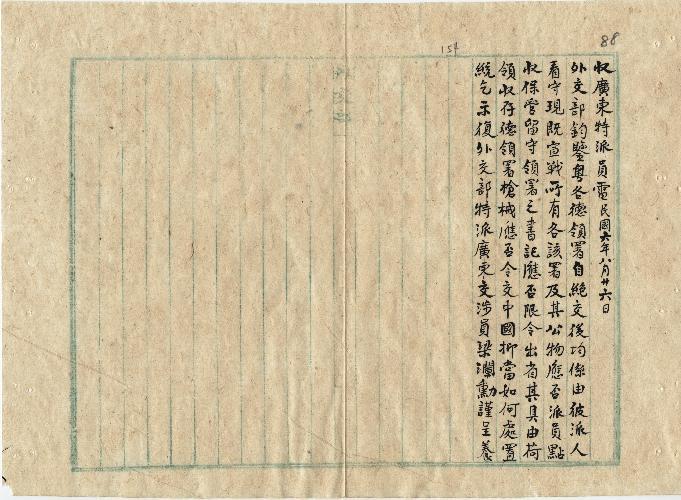 88
154
收廣東特派員電民國六年八月廿六日
外交部鈞鑒粵各德領署自絕交後均係由彼派人
看守現既宣戰所有各該署及其公物應否派員點
收保管留守領署之書記應否限令出省其具由荷
領收存德領署槍械應否令交中國抑當如何處置
統乞示復外交部特派廣東交涉員梁瀾勳謹呈養